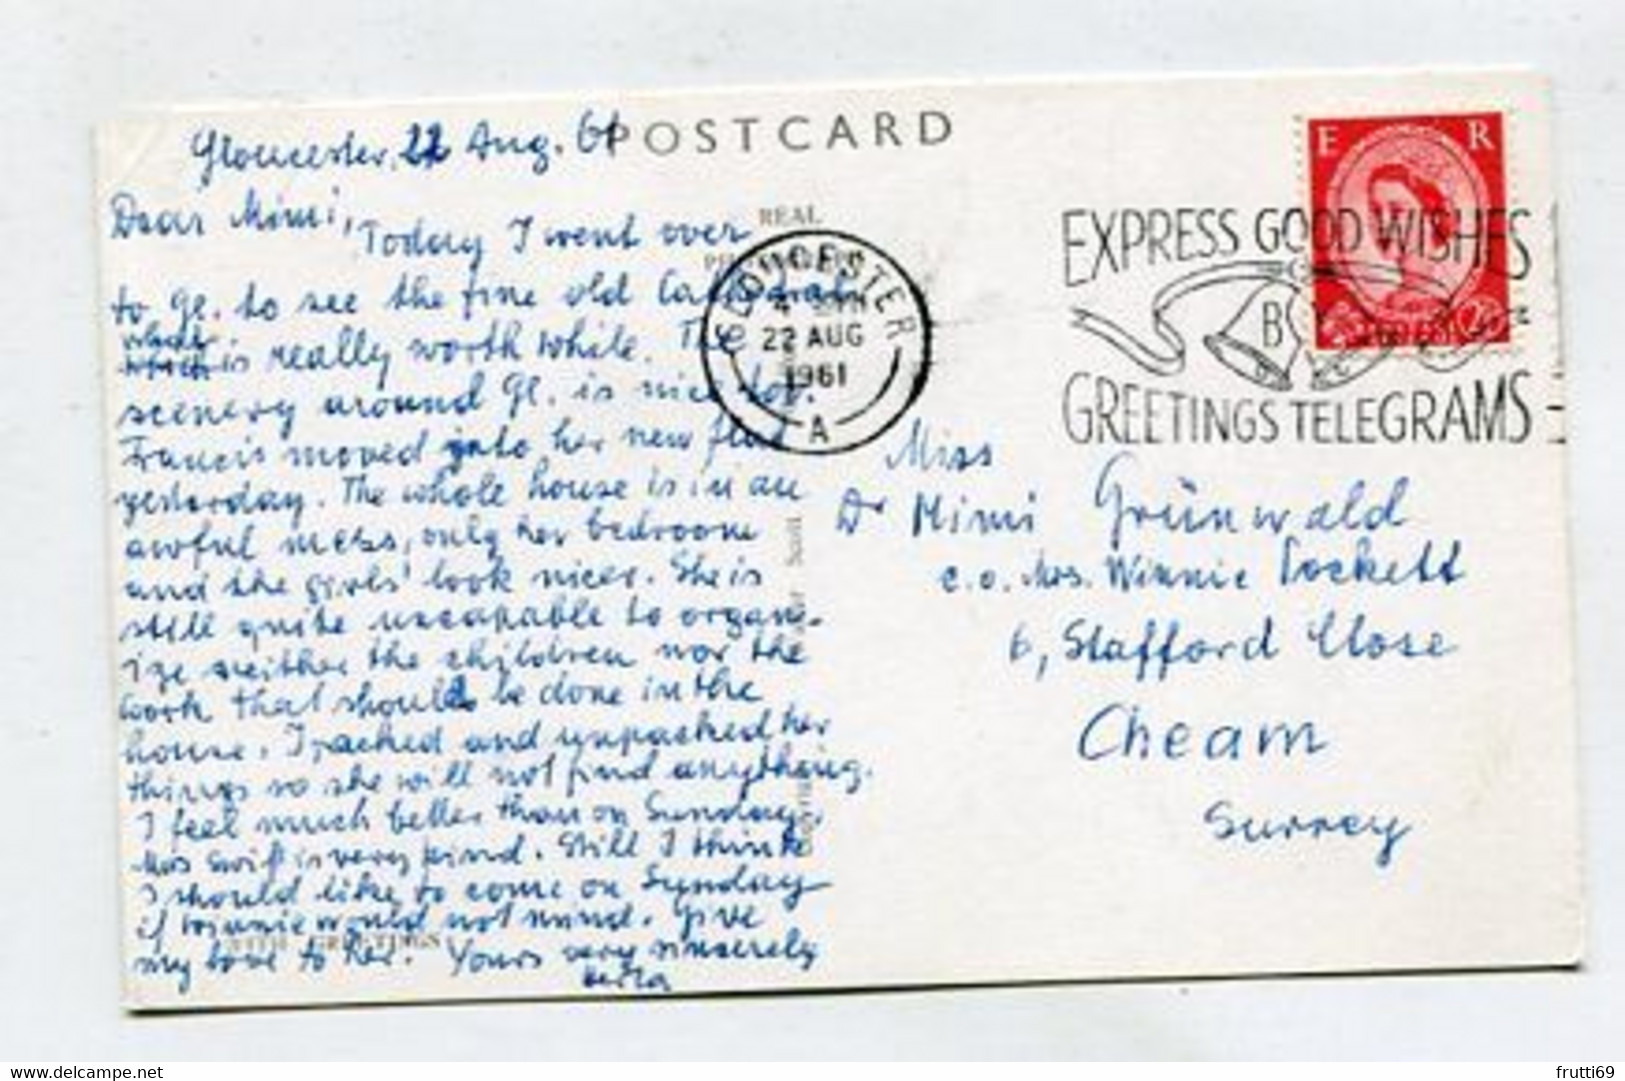 POSTCARD
Gloucester, 22 Aug. 61
Dear Mimi,
Today I went over
to Gl. to see the fine old Cathedral
which is really worth while. The
scenery around Gl. is nice too.
Francis moved into her new flat
yesterday. The whole house is in an
awful mess, only her bedroom
and the girls' look nicer. She is
still quite uncapable to organ-
ize neither the children nor the
work that should be done in the
house. I packed and unpacked her
things so she will not find anything.
I feel much better than on Sunday.
Mrs Swift is very kind. Still I think
I should like to come on Sunday
if Winnie would not mind. Give
my love to her. Yours very sincerely
REAL
WITH GREETINGS
GLOUCESTER
22 AUG
1961
A
EXPRESS GOOD WISHES
BY
GREETINGS TELEGRAMS
E R
Miss
Dr Mimi Grünwald
c.o. Mrs. Winnie Pockett
6, Stafford Close
Cheam
Surrey
delcampe.net
frutti69